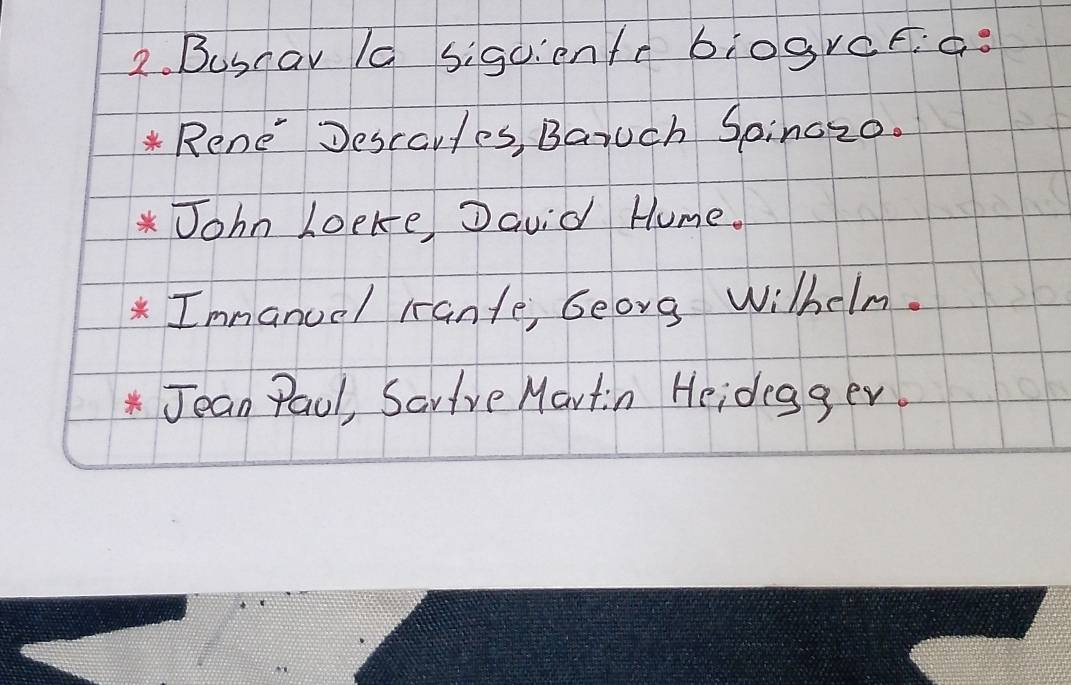 2. Buscar la siguiente biografia:
* René Descartes, Baruch Spinozo.
* John Locke, David Hume.
* Immanuel Kante, Georg Wilhelm.
* Jean Paul, Sartre Martin Heidegger.